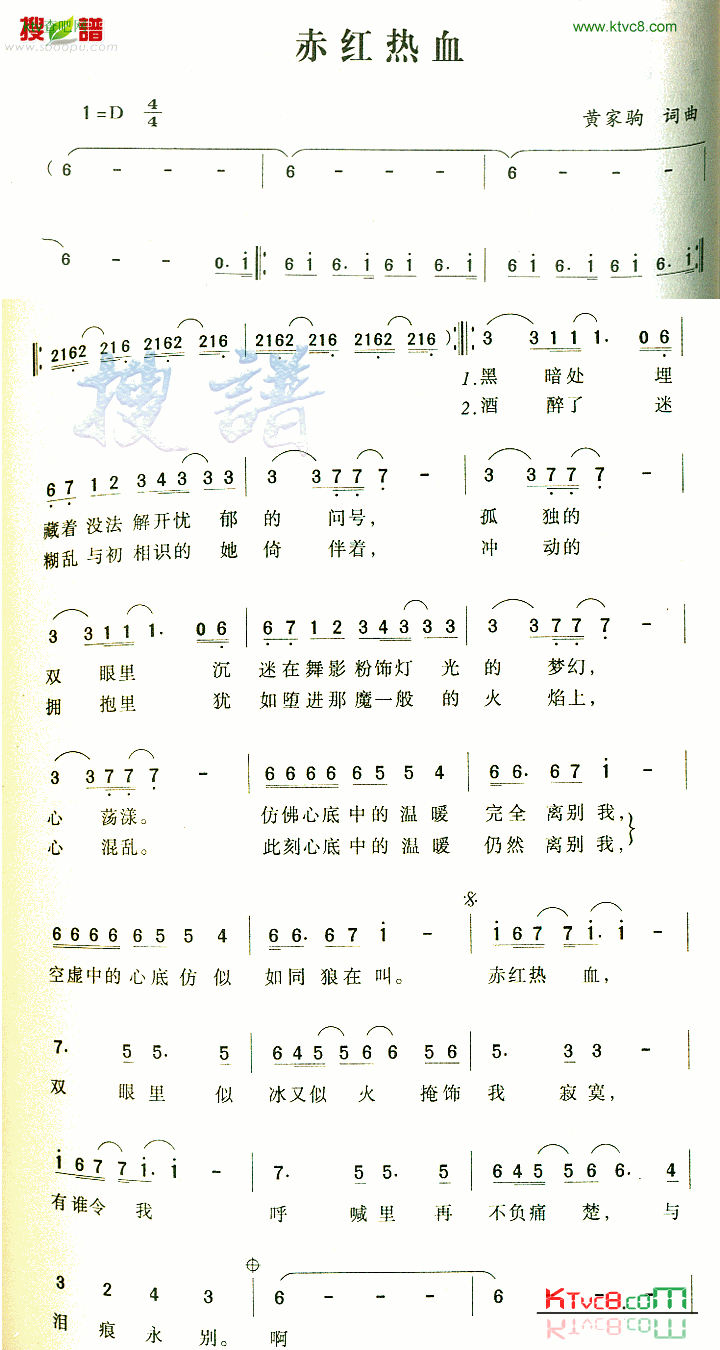 搜譜
www.sooopu.com
www.ktvc8.com
赤红热血
1=D 4/4
黄家驹 词曲
( 6 - - - | 6 - - - | 6 - - - |
6 - - 0.i ||: 6i 6.i6i 6.i | 6i6.i6i 6.i :||
||: 2162 216 2162 216 | 2162 216 2162 216 ) :||: 3 3111. 06 |
1.黑 暗处 埋
2.酒 醉了 迷
67 12 343 33 | 3 3777 - | 3 3777 - |
藏着 没法 解开忧 郁 的 问号, 孤 独的
糊乱 与初 相识的 她 倚 伴着, 冲 动的
3 3111. 06 | 6712 34333 | 3 3777 - |
双 眼里 沉 迷在舞影粉饰灯 光 的 梦幻,
拥 抱里 犹 如堕进那魔一般 的 火 焰上,
3 3777 - | 6666 6554 | 66. 67 i - |
心 荡漾。 仿佛心底中的温暖 完全 离别我,
心 混乱。 此刻心底中的温暖 仍然 离别我,
6666 655 4 | 66. 67 i - | i677i.i - |
空虚中的心底仿似 如同 狼在叫。 赤红热 血,
7. 5 5. 5 | 645 566 56 | 5. 3 3 - |
双 眼里 似 冰又似 火 掩饰 我 寂寞,
i677i.i - | 7. 5 5. 5 | 645 566. 4 |
有谁令 我 呼 喊里 再 不负痛 楚, 与
3 2 4 3 | 6 - - - | 6 -
泪 痕 永 别。 啊
KTvc8.com